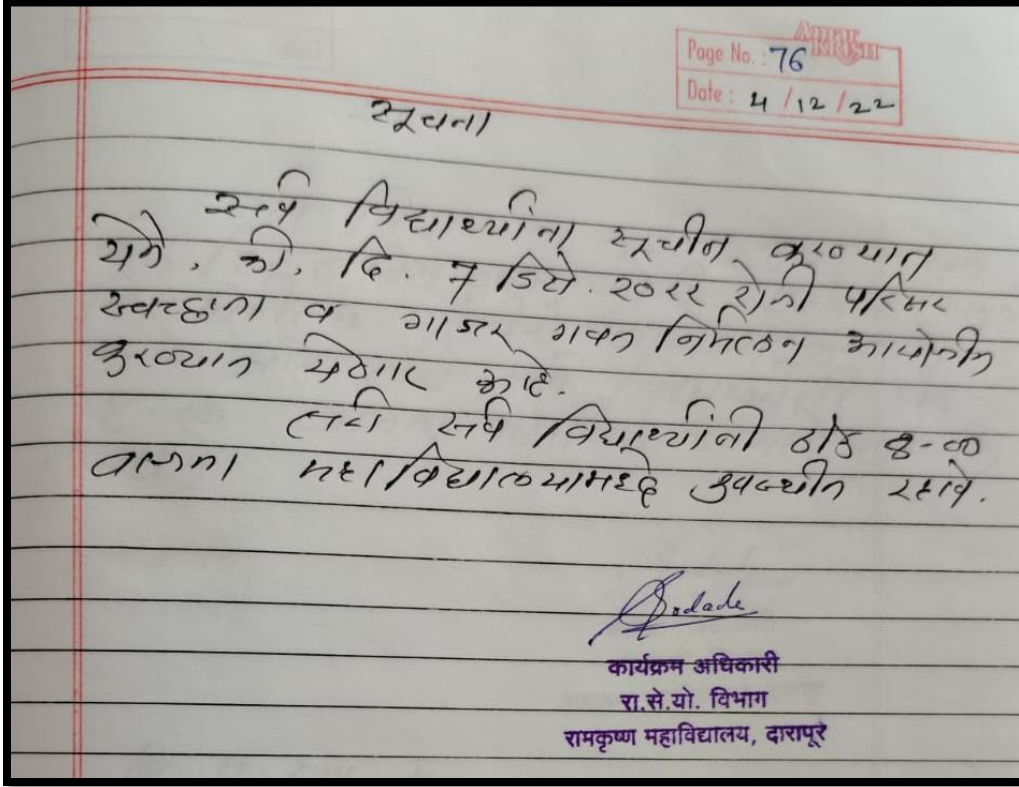 Amar
KRISH
Page No.: 76
Date: 4/12/22
सूचना
सर्व विद्यार्थ्यांना सूचीत करण्यात
येते. की, दि. 7 डिसे. २०२२ रोजी परिसर
स्वच्छता व गाजर गवत निर्मुलन आयोजीत
करण्यात येणार आहे.
तरी सर्व विद्यार्थ्यांनी ठीक 8-00
वाजता महाविद्यालयामध्ये उपस्थीत रहावे.
कार्यक्रम अधिकारी
रा.से.यो. विभाग
रामकृष्ण महाविद्यालय, दारापूर